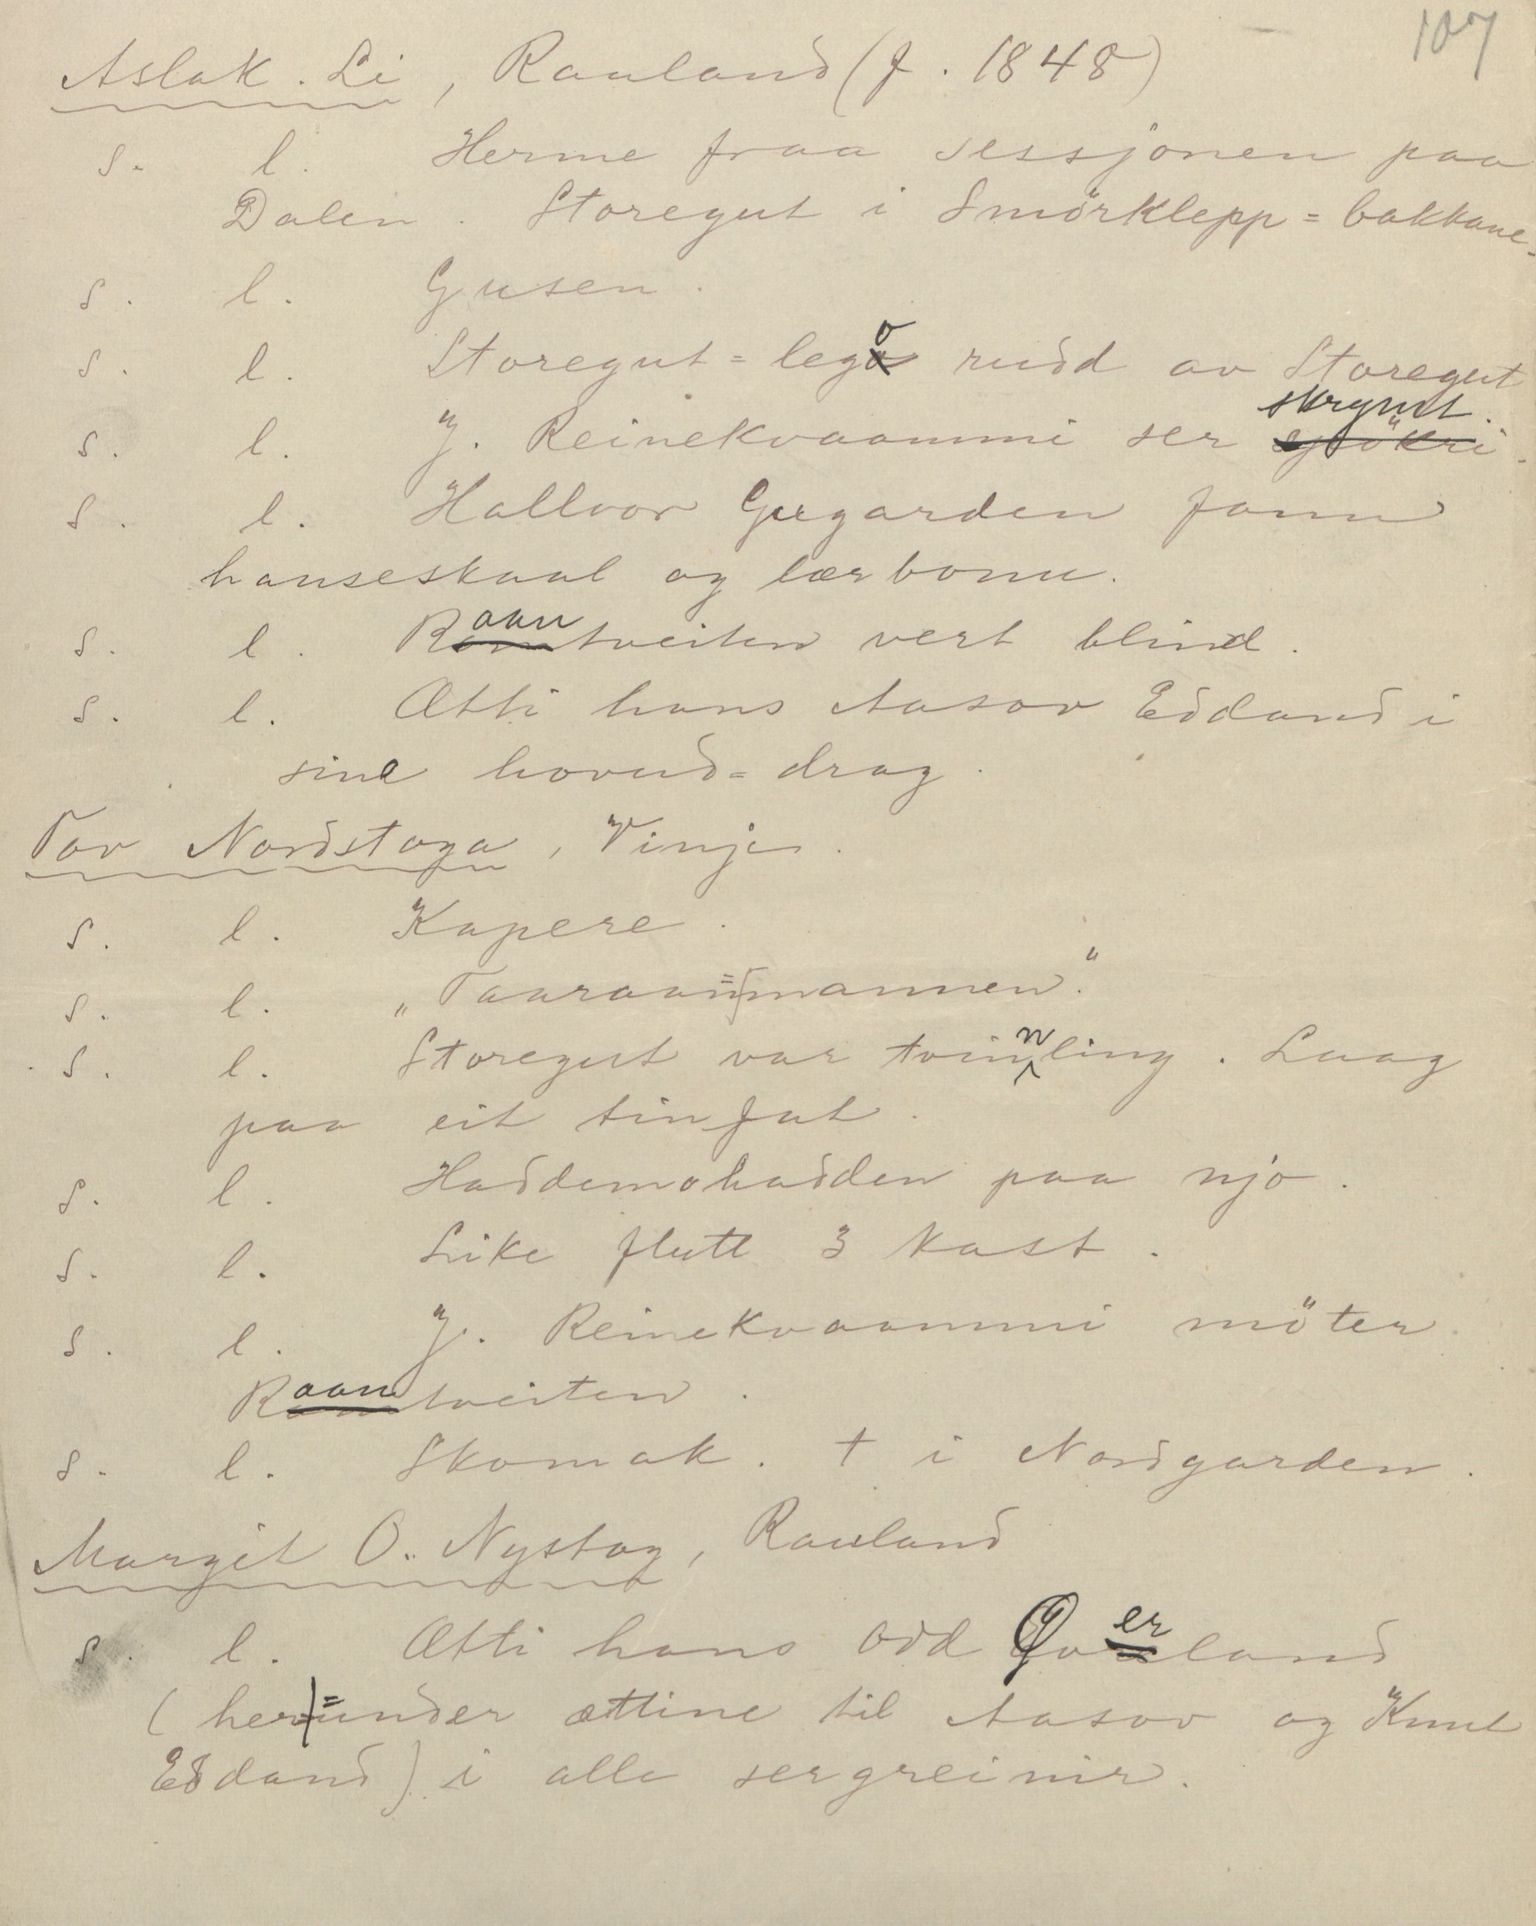 107
Aslak. Li, Rauland (f. 1848)
S. l. Herme fraa sessjonen paa
Dalen. Storegut i Smörklepp=bakkane.
S. l. Gusen.
S. l. Storegut=lego rudd av Storegut
S. l. J. Reinekvaammi ser skrymt.
S. l. Hallvor Gugarden fann
hauseskaal og lærbonu.
S. l. Raantveiten vert blind.
S. l. Ætti hans Aasov Edland i
sine hovud=drag.
Tov Nordstoga, Vinje.
S. l. Kapere.
S. l. „Taaraai=mannen."
S. l. Storegut var tvinnling. Laag
paa eit tinfat.
S. l. Haddemohadden paa njo.
S. l. Like flutt 3 kast.
S. l. J. Reinekvaammi möter
Raantveiten.
S. l. Skomak. † i Nordgarden.
Margit O. Nystog, Rauland
S. l. Ætti hans Odd Øverland
(her=under ættine til Aasov og Knut
Edland) i alle sergreinir.